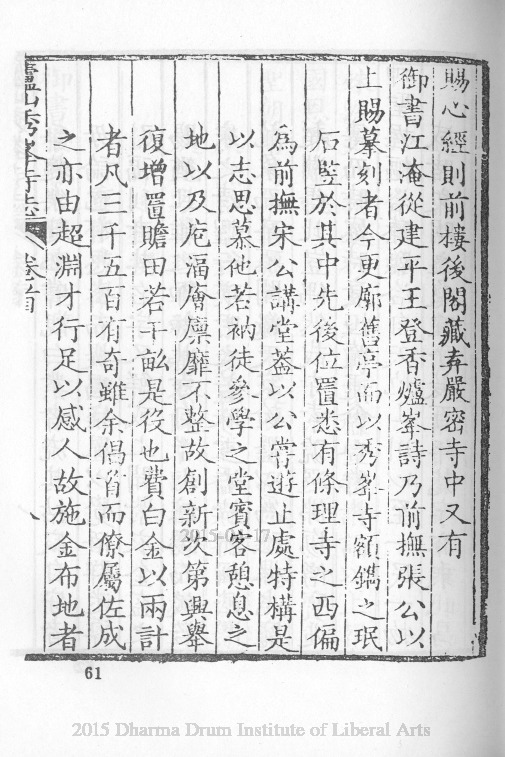 賜心經則前樓後閣藏弆嚴密寺中又有
御書江淹從建平王登香爐峯詩乃前撫張公以
上賜摹刻者今更廓舊亭而以秀峯寺額鐫之珉
石竪於其中先後位置悉有條理寺之西偏
為前撫宋公講堂葢以公嘗遊止處特構是
以志思慕他若衲徒參學之堂賓客憩息之
地以及庖湢廥廩靡不整故創新次第興舉
復增置贍田若干畝是役也費白金以兩計
者凡三千五百有奇雖余倡首而僚屬佐成
之亦由超淵才行足以感人故施金布地者
廬山秀峯寺志 卷首
61
2015-04-17
2015 Dharma Drum Institute of Liberal Arts